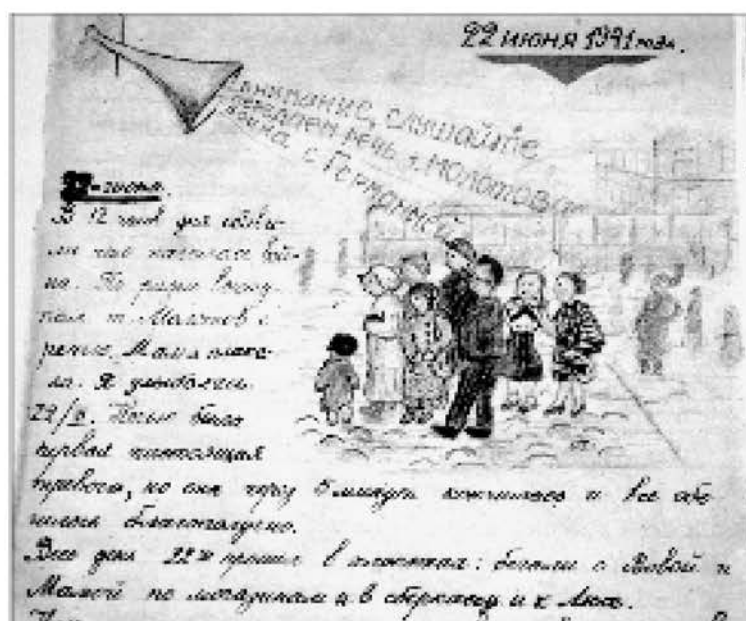 22 июня 1941 года.
Внимание, слушайте
передаем речь т. Молотова
Война с Германией
22 июня.
В 12 часов дня объяви-
ли что началась вой-
на. По радио высту-
пал т. Молотов с
речью. Мама плака-
ла. Я улыбался.
Ночью была
первая настоящая
тревога, но она через 5 минут кончилась и все обо-
шлось благополучно.
Весь день 22 прошел в хлопотах: бегали с Вовой и
Мамой по магазинам и в сберкассу и к Люсе.